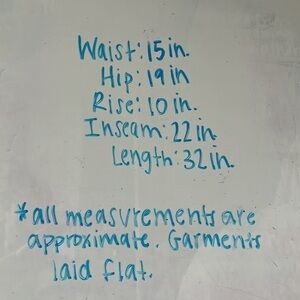 Waist: 15 in.
Hip: 19 in
Rise: 10 in.
Inseam: 22 in.
Length: 32 in.
*all measurements are
approximate. Garments
laid flat.